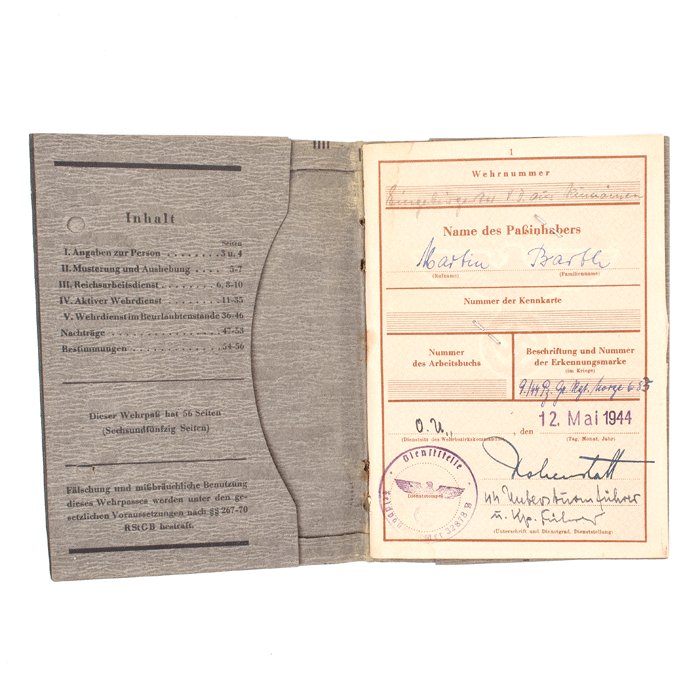 Inhalt
Seiten
I. Angaben zur Person . . . . . . . . 3 u. 4
II. Musterung und Aushebung . . . . 5-7
III. Reichsarbeitsdienst . . . . . . . . 6, 8-10
IV. Aktiver Wehrdienst . . . . . . . . 11-35
V. Wehrdienst im Beurlaubtenstande 36-46
Nachträge . . . . . . . . . . . . . . . . 47-53
Bestimmungen . . . . . . . . . . . . . 54-56
Dieser Wehrpaß hat 56 Seiten
(Sechsundfünfzig Seiten)
Fälschung und mißbräuchliche Benutzung
dieses Wehrpasses werden unter den ge-
setzlichen Voraussetzungen nach §§ 267-70
RStGB bestraft.
1
Wehrnummer
aus Rumänien
Name des Paßinhabers
Martin Barth
(Rufname) (Familienname)
Nummer der Kennkarte
Nummer
des Arbeitsbuchs
Beschriftung und Nummer
der Erkennungsmarke
(im Kriege)
O.U., den 12. Mai 1944
(Dienstsitz des Wehrbezirkskommandos) (Tag, Monat, Jahr)
Dienststelle
(Dienststempel)
Feldpost
32878 B
Untersturmführer
u. Kp. Führer
(Unterschrift und Dienstgrad, Dienststellung)